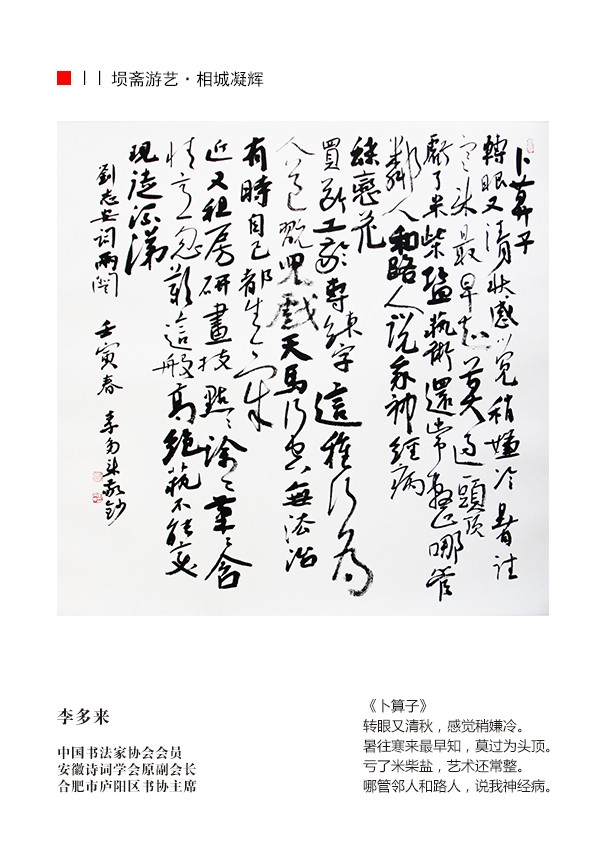 埙斋游艺·相城凝辉
卜算子
轉眼又清秋感覺稍嫌冷暑往
寒来最早知莫過頭頂
虧了米柴鹽藝術還常整哪管
鄰人和路人說我神經病
蝶戀花
買斷工齡專練字這種行為
兒戲天馬行空無法治
有時自己都生
近又租房研畫技點點葉葉含
情意忽歎這般高絕藝不能變
現徒添涕
劉志安詞兩闋 壬寅春 李多来敬鈔
李多来
中国书法家协会会员
安徽诗词学会原副会长
合肥市庐阳区书协主席
《卜算子》
转眼又清秋，感觉稍嫌冷。
暑往寒来最早知，莫过为头顶。
亏了米柴盐，艺术还常整。
哪管邻人和路人，说我神经病。